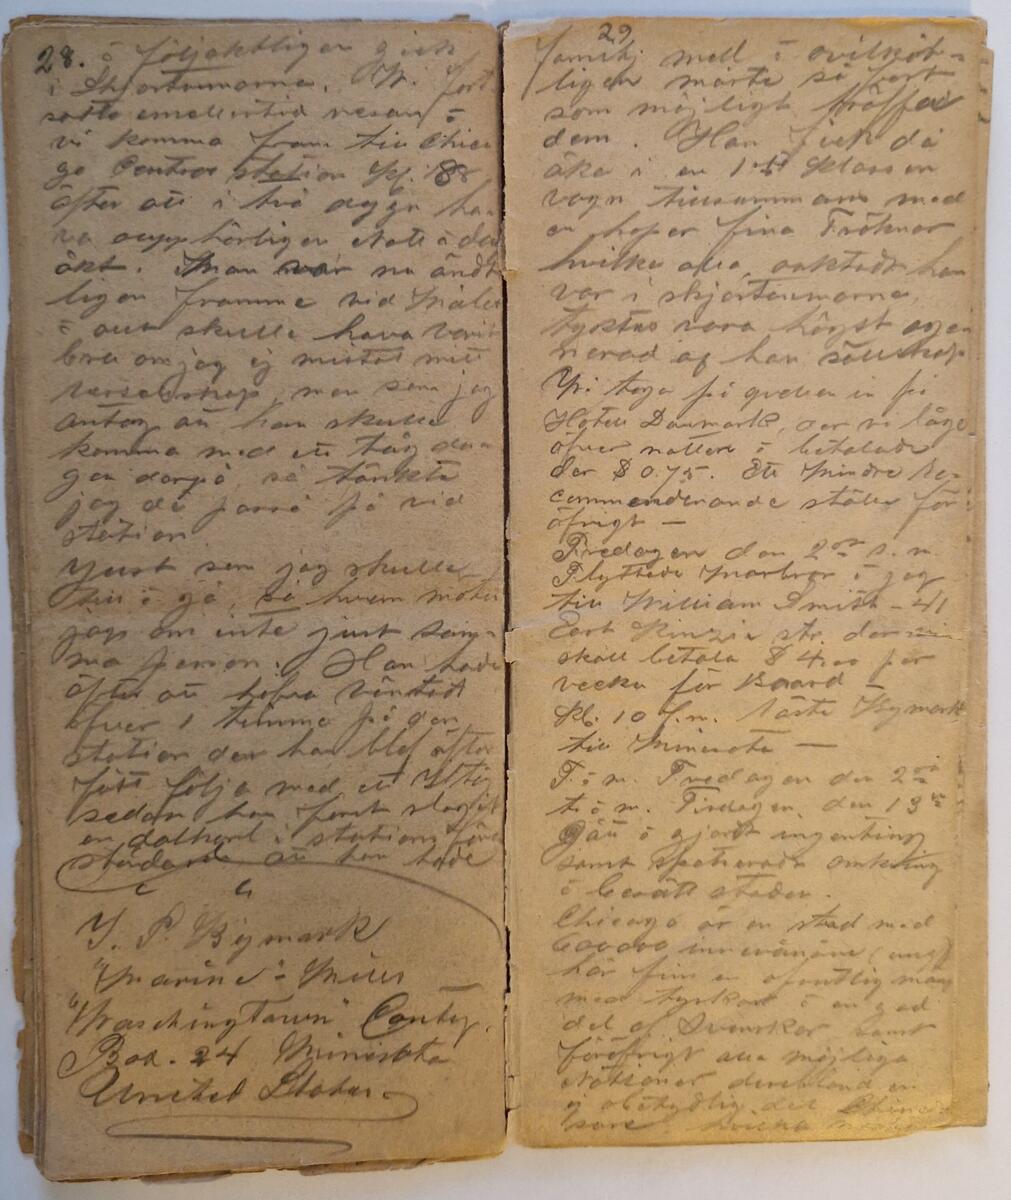 28.
& följaktligen gick
i Skjortermarna. Vi fort
satte emellertid resan &
vi komma fram till Chica
go Centrar station kl. 8
öfter att i två dygn ha
va oupphörligen Natt & dag
åkt. Man var nu ändt
ligen framme vid Målet
& allt skulle hava varit
bra om jag ej mistat mitt
resesällskap, men som jag
antog att han skulle
komma med ett tåg da
gen derpå så tänkte
jag då passa på vid
station
Just som jag skulle
till & gå, så hvem möter
jag om inte just sam-
ma person. Han hade
öfter att hafva väntat
öfver 1 timma på den
station der han blef öfter
fått följa med ett Iltåg
sedan han först slagit
en i stations före
ståndare att han hade
J. P. Bymark
"Marine" Mills
"Waschingtown" Conty.
Box. 24 Minisota
United States.
29
familj med & ovilkor-
ligen måste så fort
som möjligt träffa
dem. Han fick då
åka i en 1st klassen
vagn tillsammans med
en hoper fina Fröknar
hvilka alla, oaktadt han
var i skjortermarna,
tycktes vara högst ogen
nerad af han sällskap
Vi toga på qvellen in på
Hotell Danmark, der vi lågo
öfver natten & betalade
der $ 0.75. Ett mindre re-
commenderande ställe för
öfrigt —
Fredagen den 2dre s. m.
Flyttede & jag
till William Smith - 41
East Kinzie str. der vi
skall betala $ 4.00 per
vecka för Board —
kl. 10 f.m. reste Bymark
till Minisota —
F. & m. Fredagen den 2dre
t. & m. Tisdagen den 13de
Gått & gjort ingenting
samt spatserade omkring
& besett staden.
Chicago är en stad med
600000 innevånare (ungf)
här fins en ofantlig mängd
med tyskar & en god
del af Svenskar samt
föröfrigt alla möjliga
Nationer deribland en
ej obetydlig del Chine-
sare. hvilka